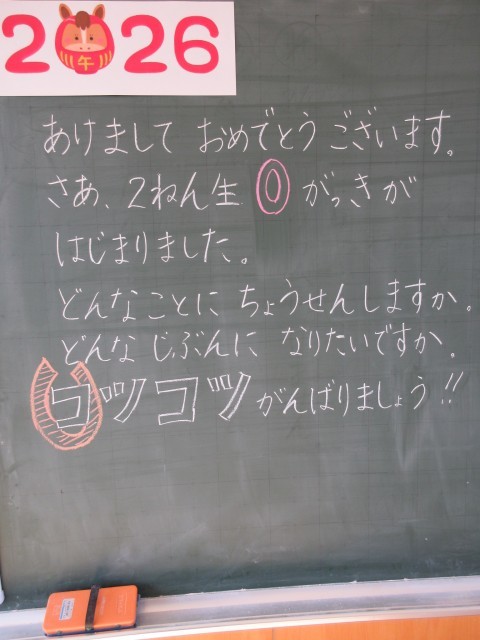 2026
午
あけまして おめでとう ございます。
さあ、2ねん生 0 がっきが
はじまりました。
どんなことに ちょうせんしますか。
どんな じぶんに なりたいですか。
コツコツ がんばりましょう!!